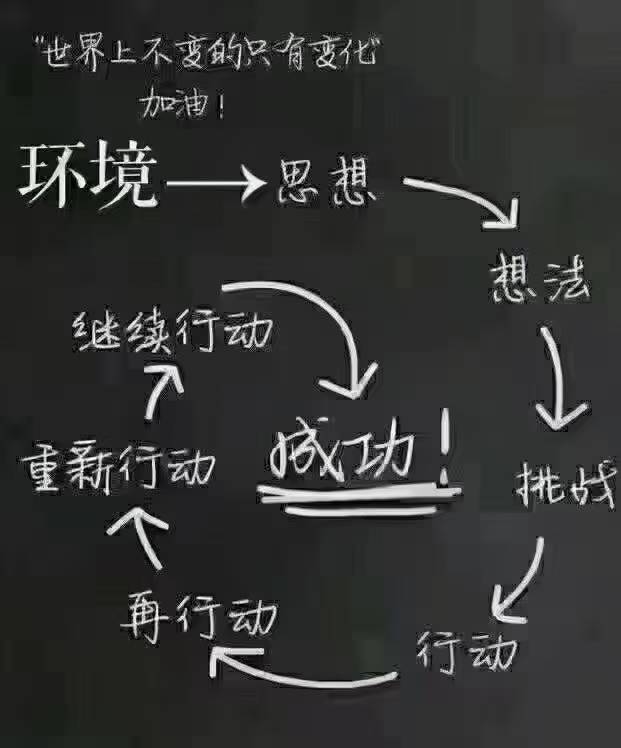 "世界上不变的只有变化"
加油！
环境
思想
想法
挑战
行动
再行动
重新行动
继续行动
成功！